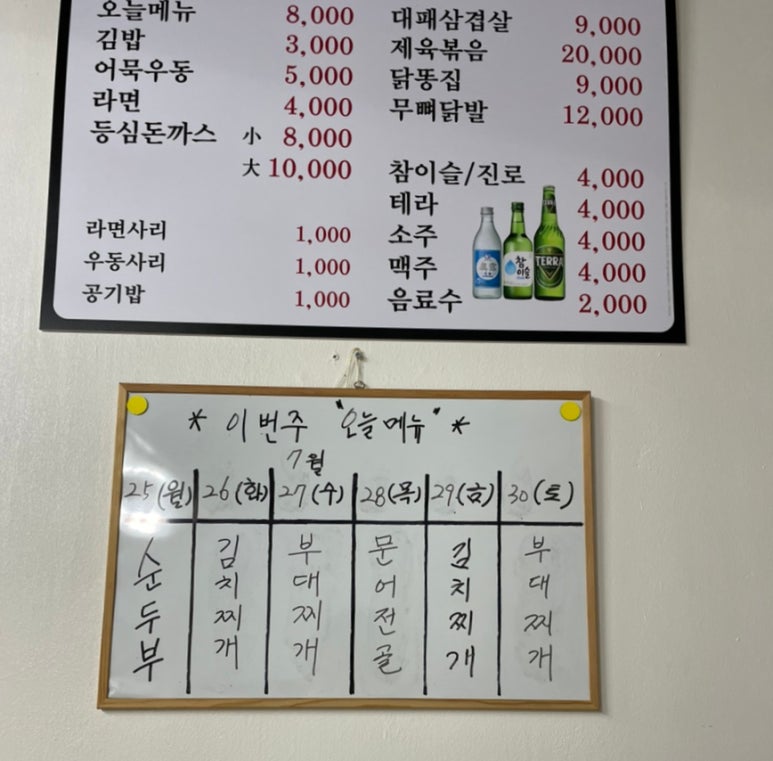 오늘메뉴 8,000
김밥 3,000
어묵우동 5,000
라면 4,000
등심돈까스 小 8,000
大 10,000
라면사리 1,000
우동사리 1,000
공기밥 1,000
대패삼겹살 9,000
제육볶음 20,000
닭똥집 9,000
무뼈닭발 12,000
참이슬/진로 4,000
테라 4,000
소주 4,000
맥주 4,000
음료수 2,000
참이슬
TERRA
* 이번주 "오늘메뉴" *
7월
25(월) 26(화) 27(수) 28(목) 29(금) 30(토)
순두부 김치찌개 부대찌개 문어전골 김치찌개 부대찌개